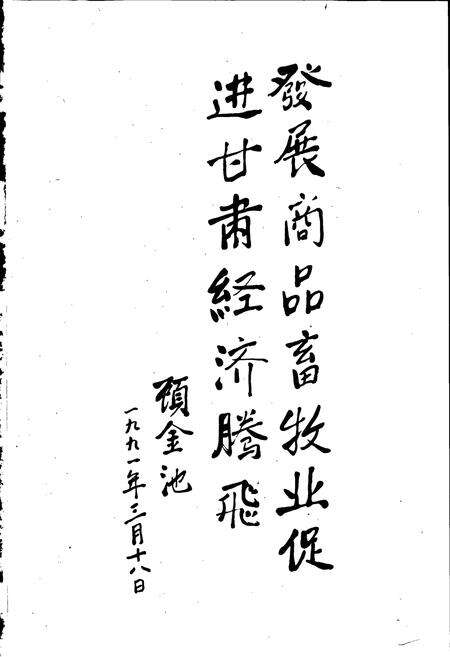 發展商品畜牧业促
进甘肃经济腾飛
顾金池
一九九一年三月十八日